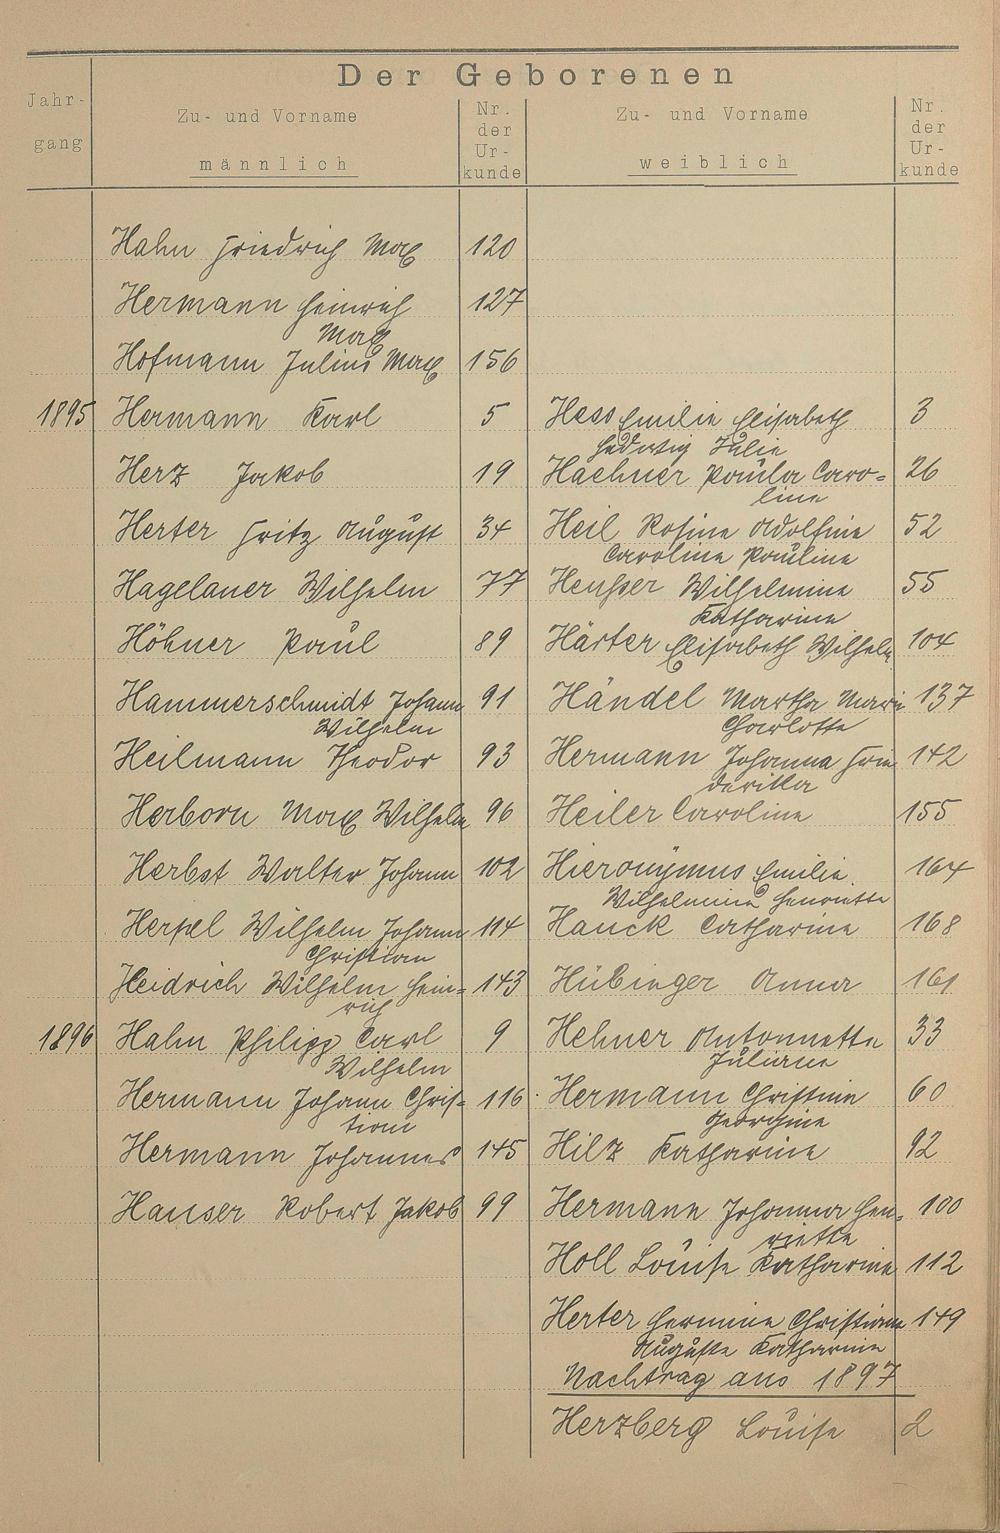 Der Geborenen
Jahr-
gang
Zu- und Vorname
männlich
Nr.
der
Ur-
kunde
Zu- und Vorname
weiblich
Nr.
der
Ur-
kunde
Hahn Friedrich Max 120
Hermann Heinrich 127
Max
Hofmann Julius Max 156
1895 Hermann Karl 5 Hess Emilie Elisabeth 3
Hedwig Julie
Herz Jakob 19 Haehner Paula Caro= 26
line
Herter Fritz August 34 Heil Rosine Adolfine 52
Caroline Pauline
Hagelauer Wilhelm 77 Heußer Wilhelmine 55
Katharine
Höhner Paul 89 Härter Elisabeth Wilhelm 104
Hammerschmidt Johann 91 Händel Martha Marie 137
Wilhelm Charlotte
Heilmann Theodor 93 Hermann Johanna Frie 142
derika
Herborn Max Wilhelm 96 Heiler Caroline 155
Herbst Walter Johann 102 Hieronymus Emilie 164
Wilhelmine Henriette
Herpel Wilhelm Johann 114 Hauck Catharine 168
Christian
Heidrich Wilhelm Hein= 143 Hübinger Anna 161
rich
1896 Hahn Philipp Carl 9 Hehner Antonnette 33
Wilhelm Juliane
Hermann Johann Chris= 116 Hermann Christine 60
tian Georgine
Hermann Johannes 145 Hilz Katharine 92
Hauser Robert Jakob 99 Hermann Johanna Hen= 100
riette
Holl Louise Katharine 112
Herter Hermine Christiane 149
Auguste Katharine
Nachtrag aus 1897
Herzberg Louise 2